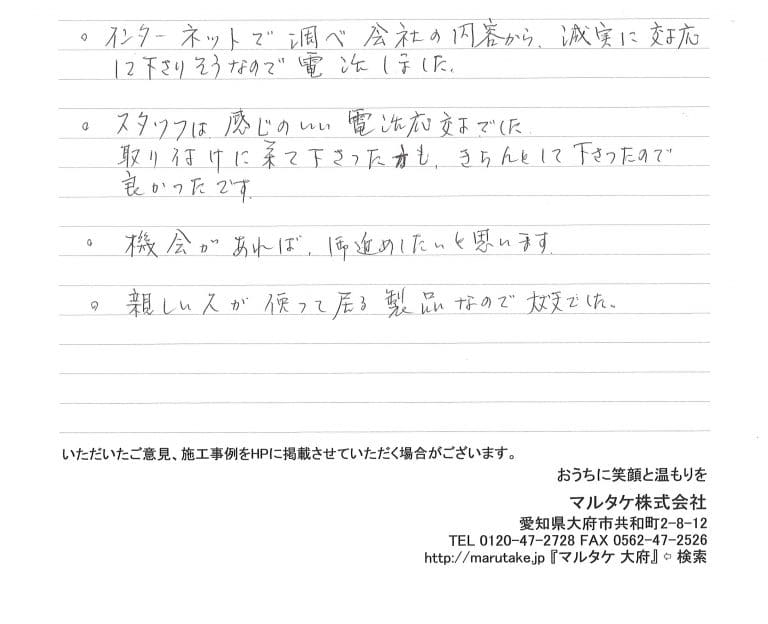 。インターネットで調べ会社の内容から、誠実に対応
して下さりそうなので電話しました。
。スタッフは感じのいい電話応対でした
取り付けに来て下さった方も、きちんとして下さったので
良かったです。
。機会があれば、御進めしたいと思います。
。親しい人が使って居る製品なので でした。
いただいたご意見、施工事例をHPに掲載させていただく場合がございます。
おうちに笑顔と温もりを
マルタケ株式会社
愛知県大府市共和町2-8-12
TEL 0120-47-2728 FAX 0562-47-2526
http://marutake.jp『マルタケ 大府』⇦ 検索